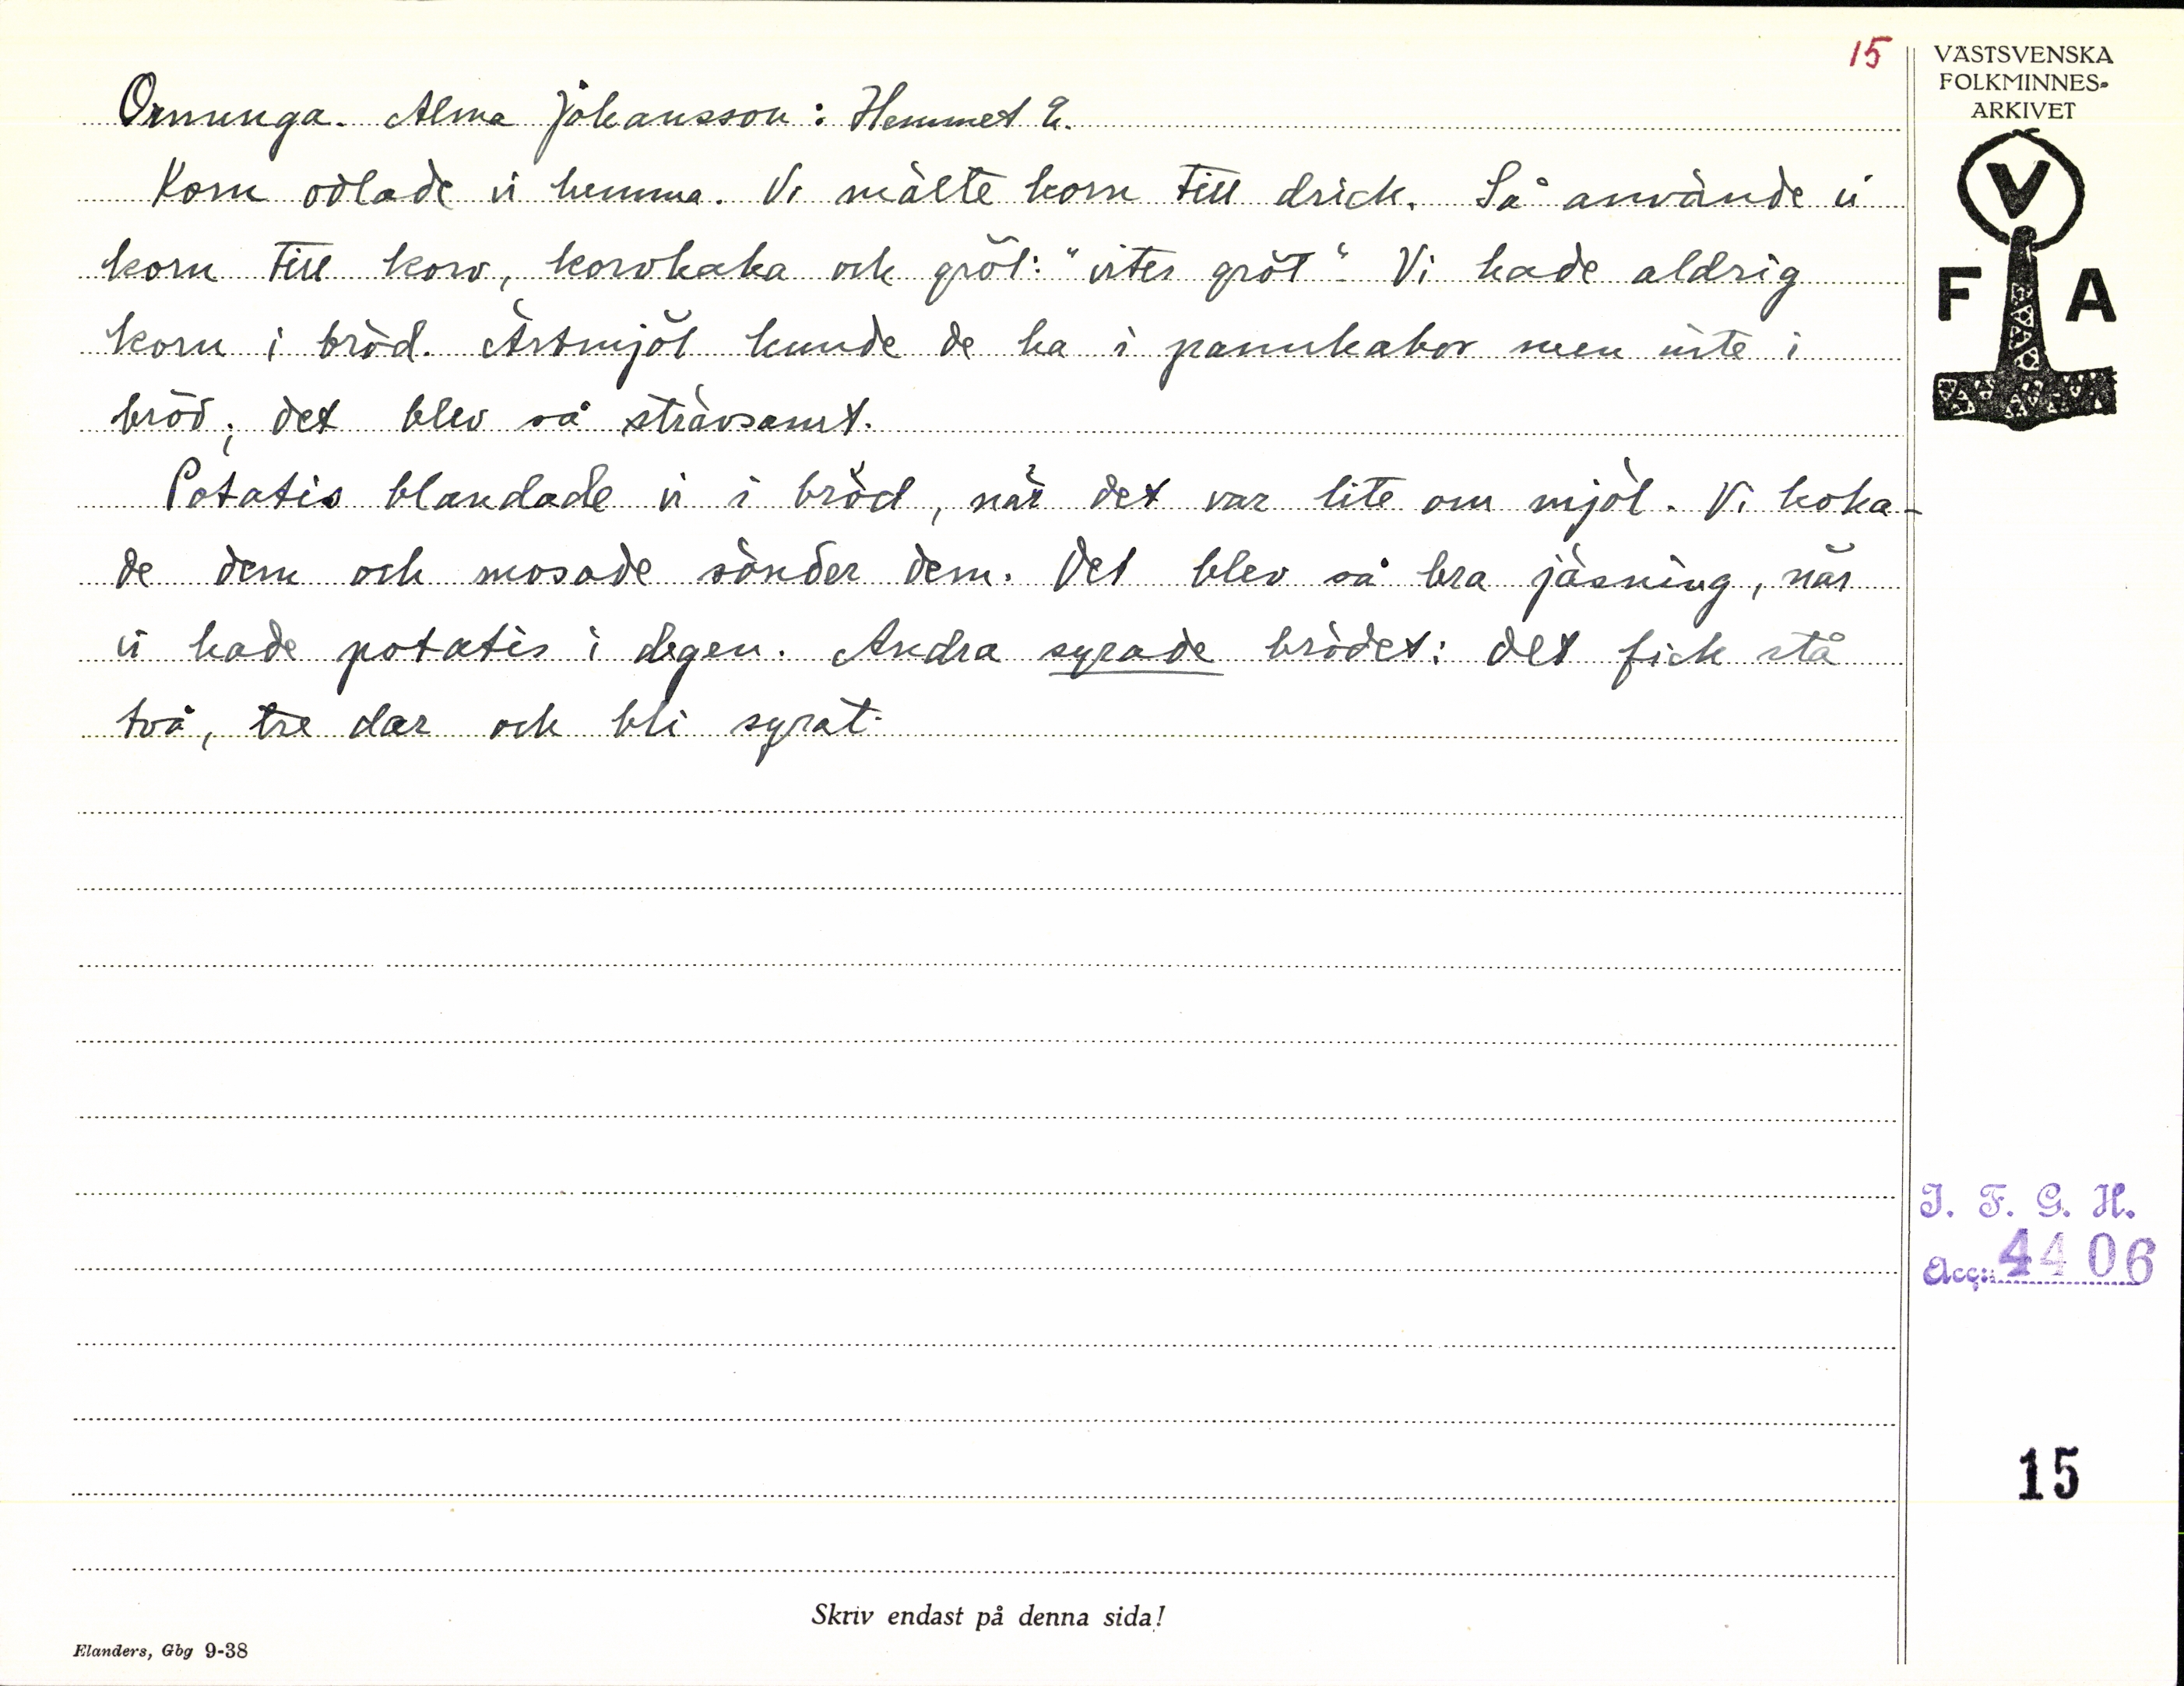 15
VÄSTSVENSKA
FOLKMINNES-
ARKIVET
V
F A
Ornunga. Alma Johansson: Hemmet 2.
Korn odlade vi hemma. Vi mälte korn till drick. Så använde vi
korn till korv, korvkaka och gröt: "viter gröt". Vi hade aldrig
korn i bröd. Ärtmjöl kunde de ha i pannkakor men inte i
bröd; det blev så strävsamt.
Potatis blandade vi i bröd, när det var lite om mjöl. Vi koka-
de dem och mosade sönder dem. Det blev så bra jäsning, när
vi hade potatis i degen. Andra syrade brödet: det fick stå
två, tre dar och bli syrat.
I. F. G. H.
Acc: 4406
15
Skriv endast på denna sida!
Elanders, Gbg 9-38